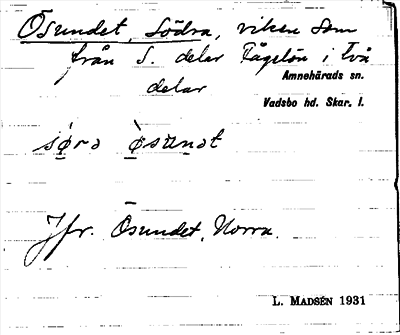 Ösundet, Södra, viken som
från S. delar Fågelön i två
Amnehärads sn.
delar
Vadsbo hd. Skar. l.
sø̀rɔ ø̀sɯnət
Jfr. Ösundet, Norra.
L. MADSÉN 1931